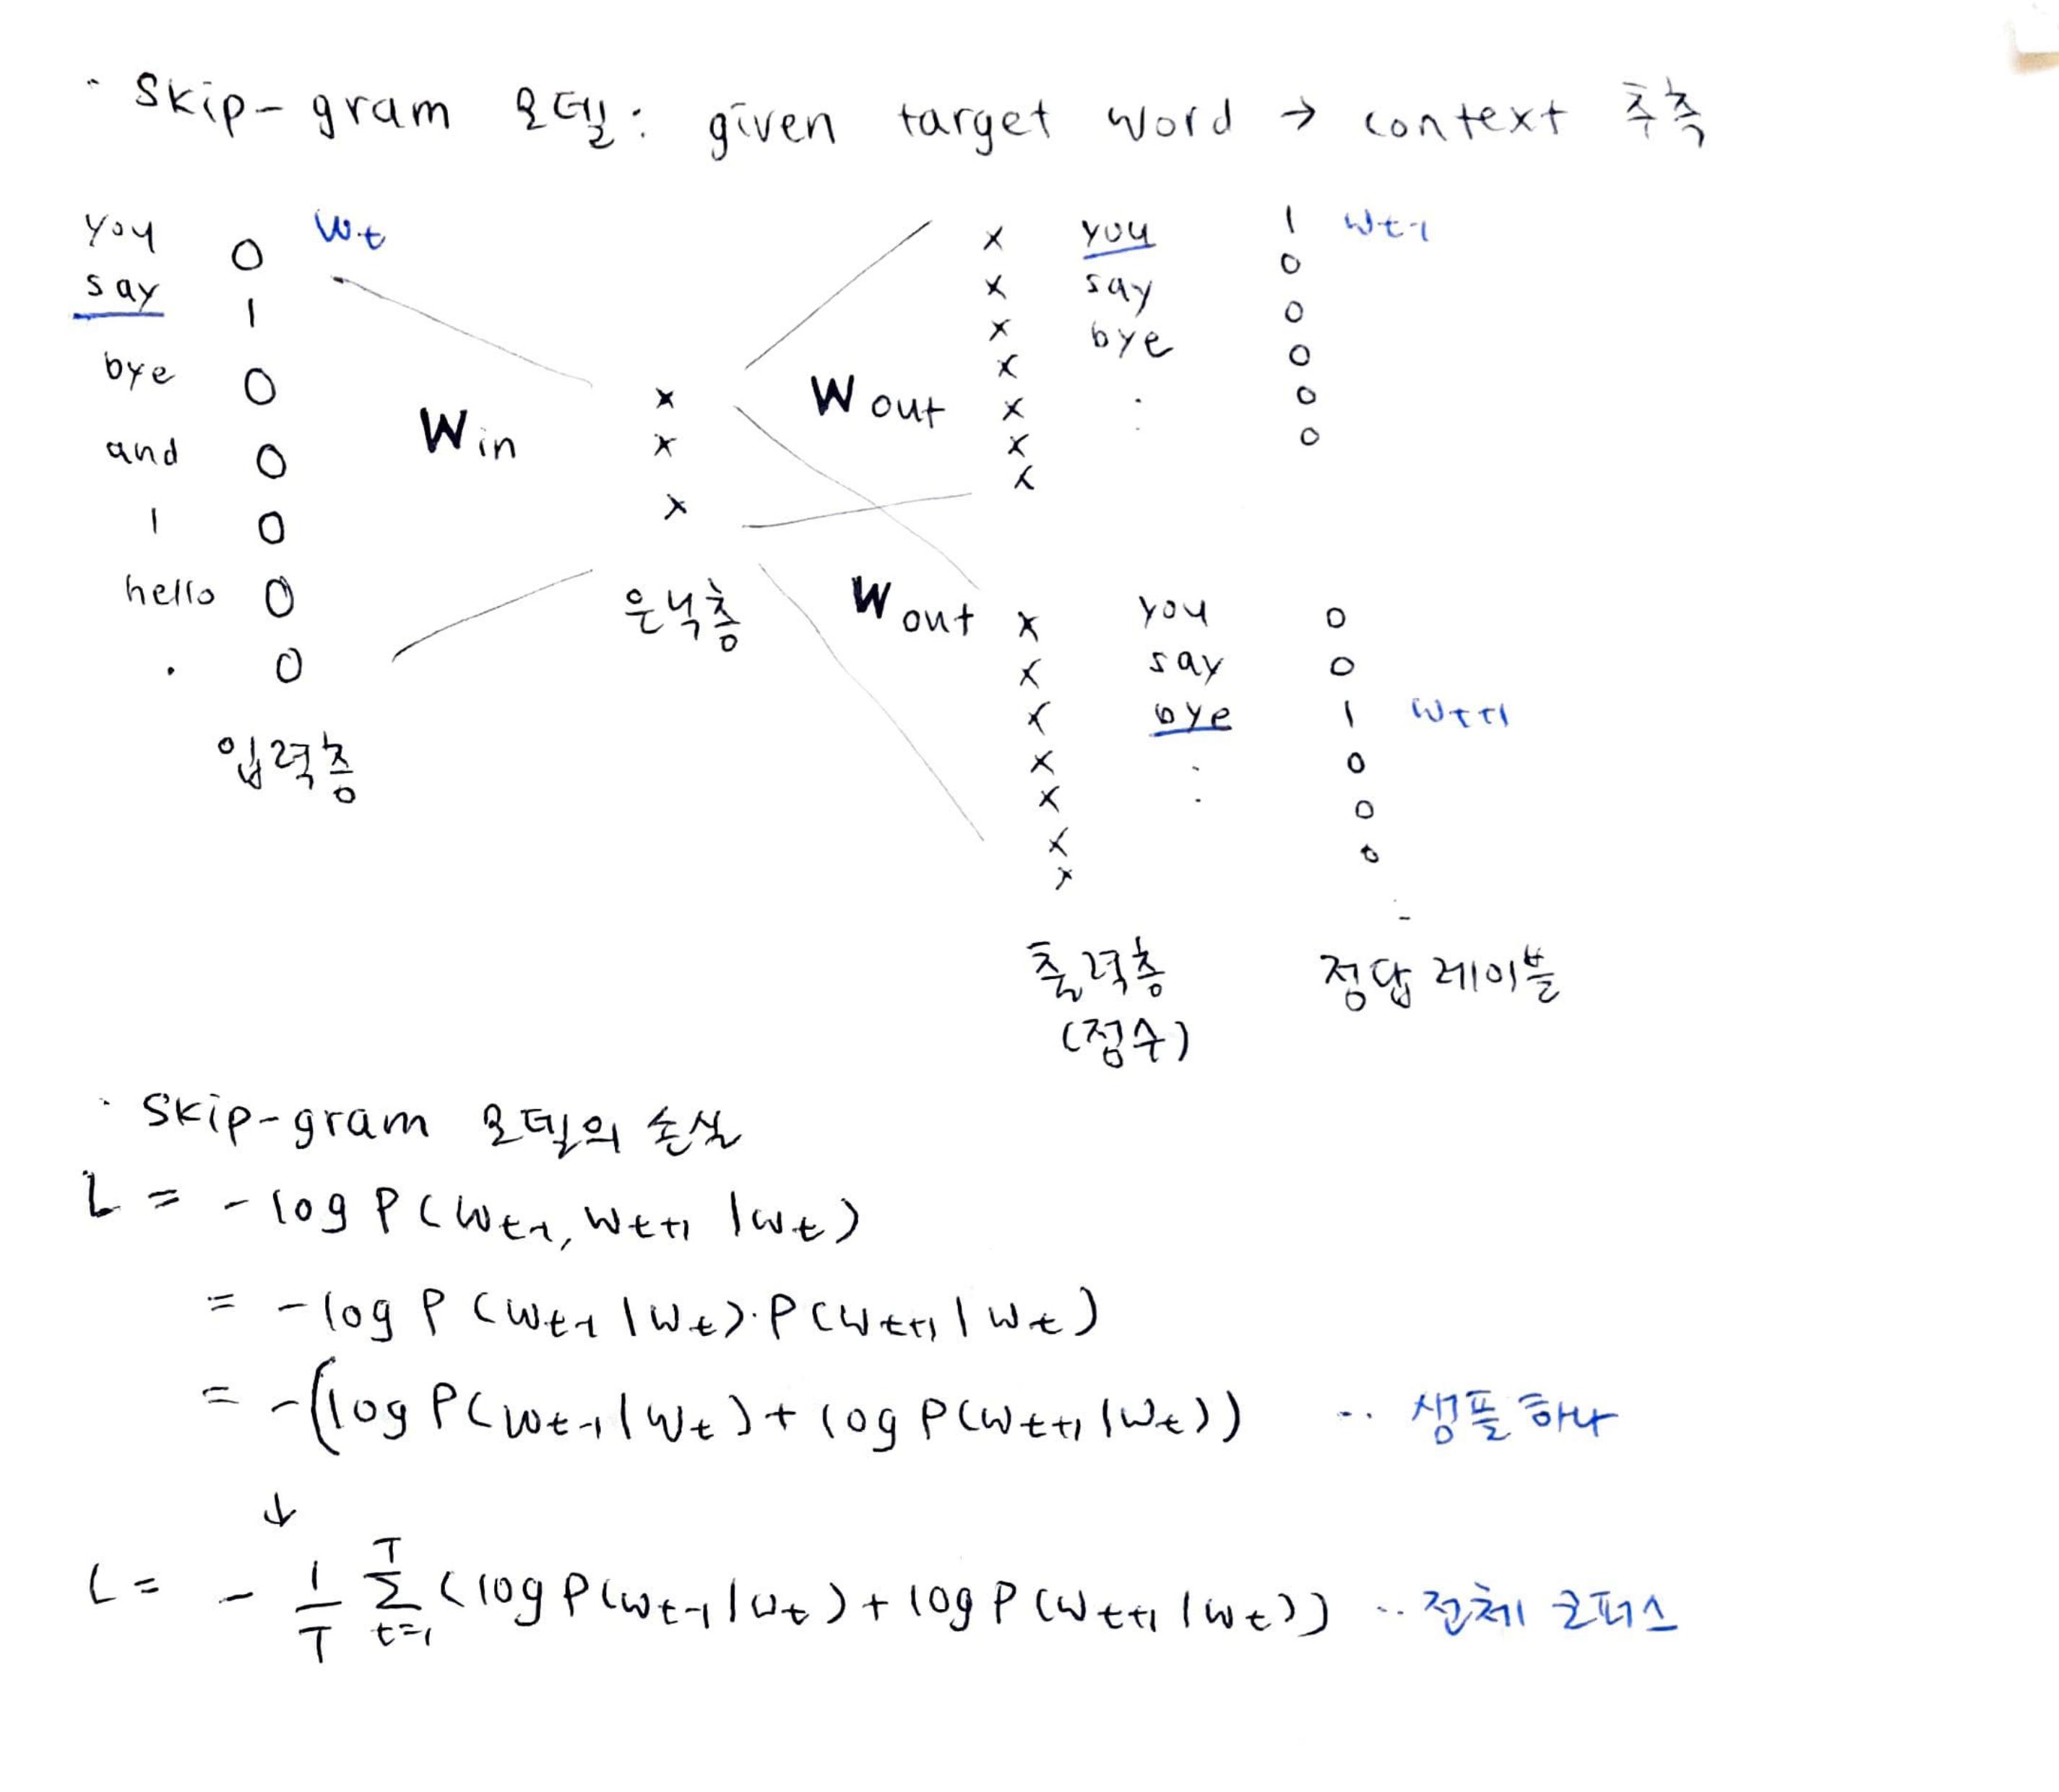 · Skip-gram 모델: given target word → context 추측
you 0 Wt
say 1
bye 0
and 0
I 0
hello 0
. 0
입력층
Win
x
x
x
은닉층
Wout
x you 1 Wt-1
x say 0
x bye 0
x : 0
x 0
x 0
x
Wout
x you 0
x say 0
x bye 1 Wt+1
x : 0
x 0
x 0
x
출력층
(점수)
정답 레이블
· Skip-gram 모델의 손실
L = -log P(Wt-1, Wt+1 | Wt)
= -log P(Wt-1 | Wt)·P(Wt+1 | Wt)
= -(log P(Wt-1 | Wt) + log P(Wt+1 | Wt)) ... 샘플 하나
↓
L = - 1/T T Σ t=1 (log P(Wt-1 | Wt) + log P(Wt+1 | Wt)) ... 전체 코퍼스